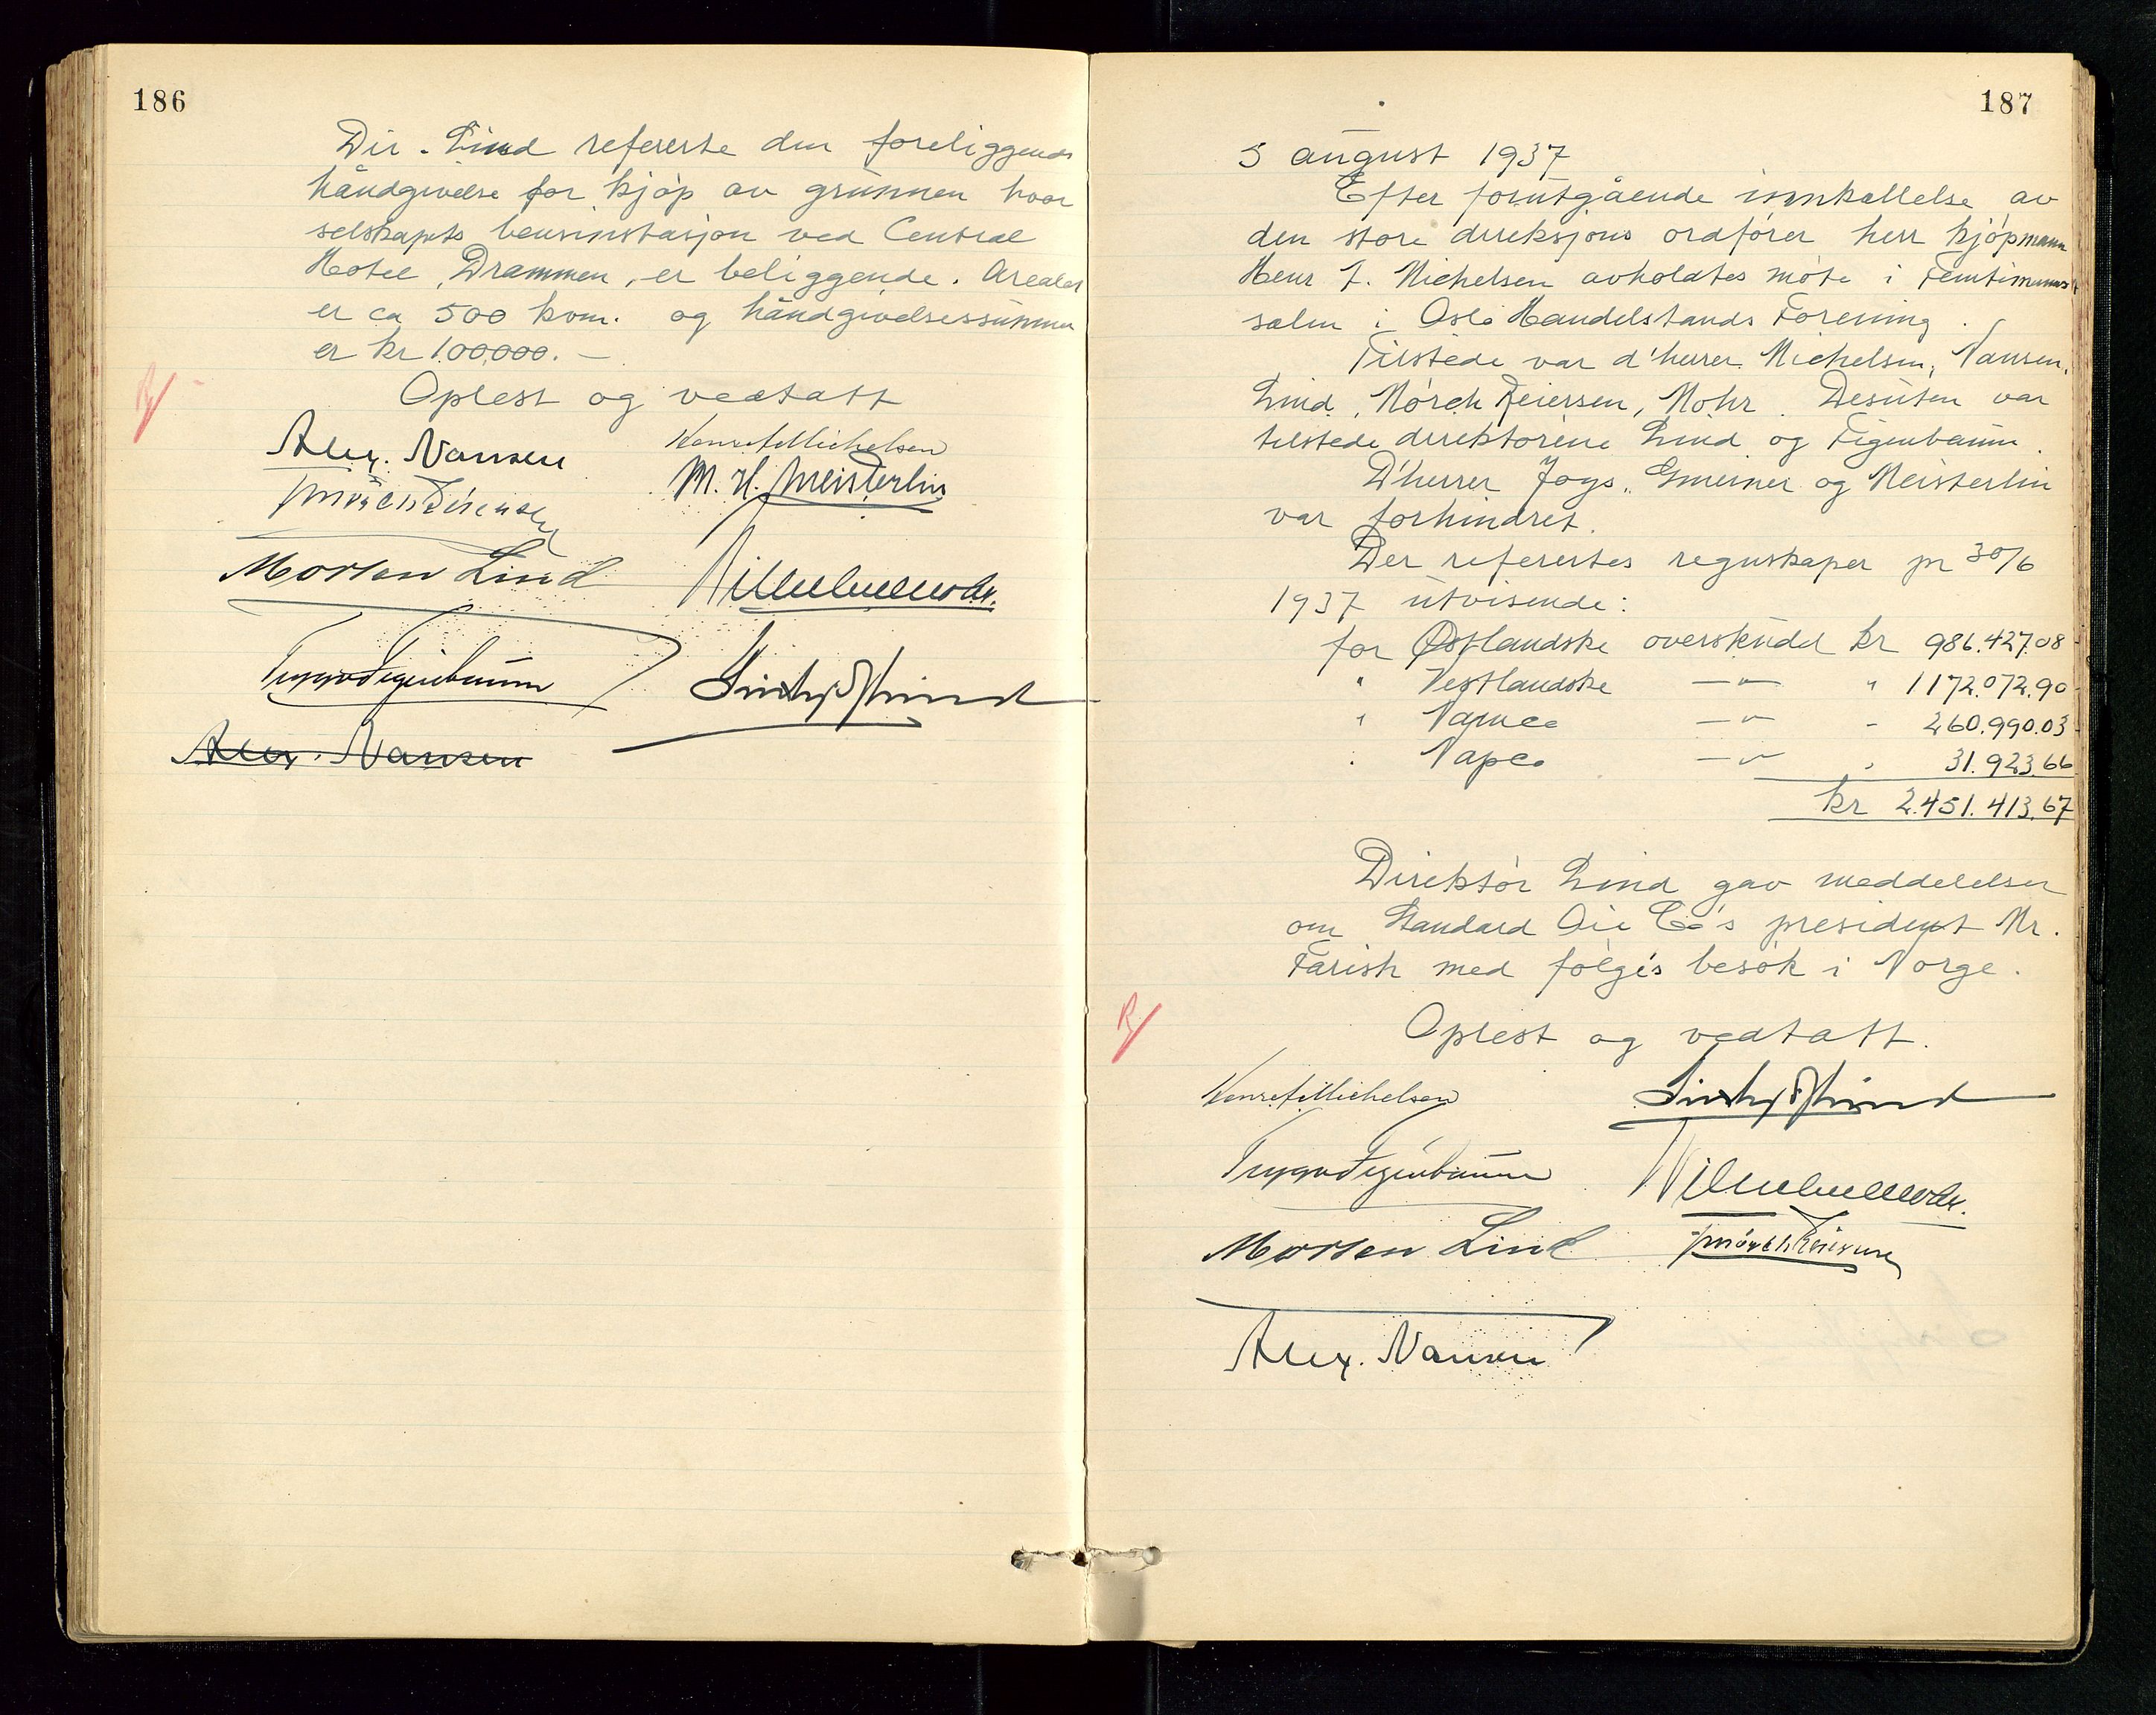 186
Dir. Lind refererte den foreliggende
håndgivelse for kjøp av grunnen hvor
selskapets bensinstasjon ved Central
Hotel, Drammen, er beliggende. Arealet
er ca 500 kvm. og håndgivelsessummen
er kr 100.000.—
Oplest og vedtatt
Alex. Nansen
M. H. Meisterlin
Morten Lind
Alex. Nansen
187
5 august 1937
Efter forutgående innkallelse av
den store direksjons ordfører herr kjøpmann
Henr F. Michelsen avholdtes møte i
salen i Oslo Handelstands Forening.
Tilstede var d'herrer Michelsen, Nansen,
Lind, Mørch Reiersen, Mohr. Desuten var
tilstede direktørene Lind og Figenbaum.
D'herrer Joys, Gmeiner og Meisterlin
var forhindret.
Der refertes regnskaper pr 30/6
1937 utvisende:
for Østlandske overskudd kr 986.427.08
" Vestlandske —"— " 1172.072.90
" Namco —"— - 260.990.03
" Napco —"— " 31.923.66
kr 2.451.413.67
Direktør Lind gav meddelelser
om Standard Oil Co's president Mr.
Farish med følge's besøk i Norge.
Oplest og vedtatt.
Morten Lind
Alex. Nansen